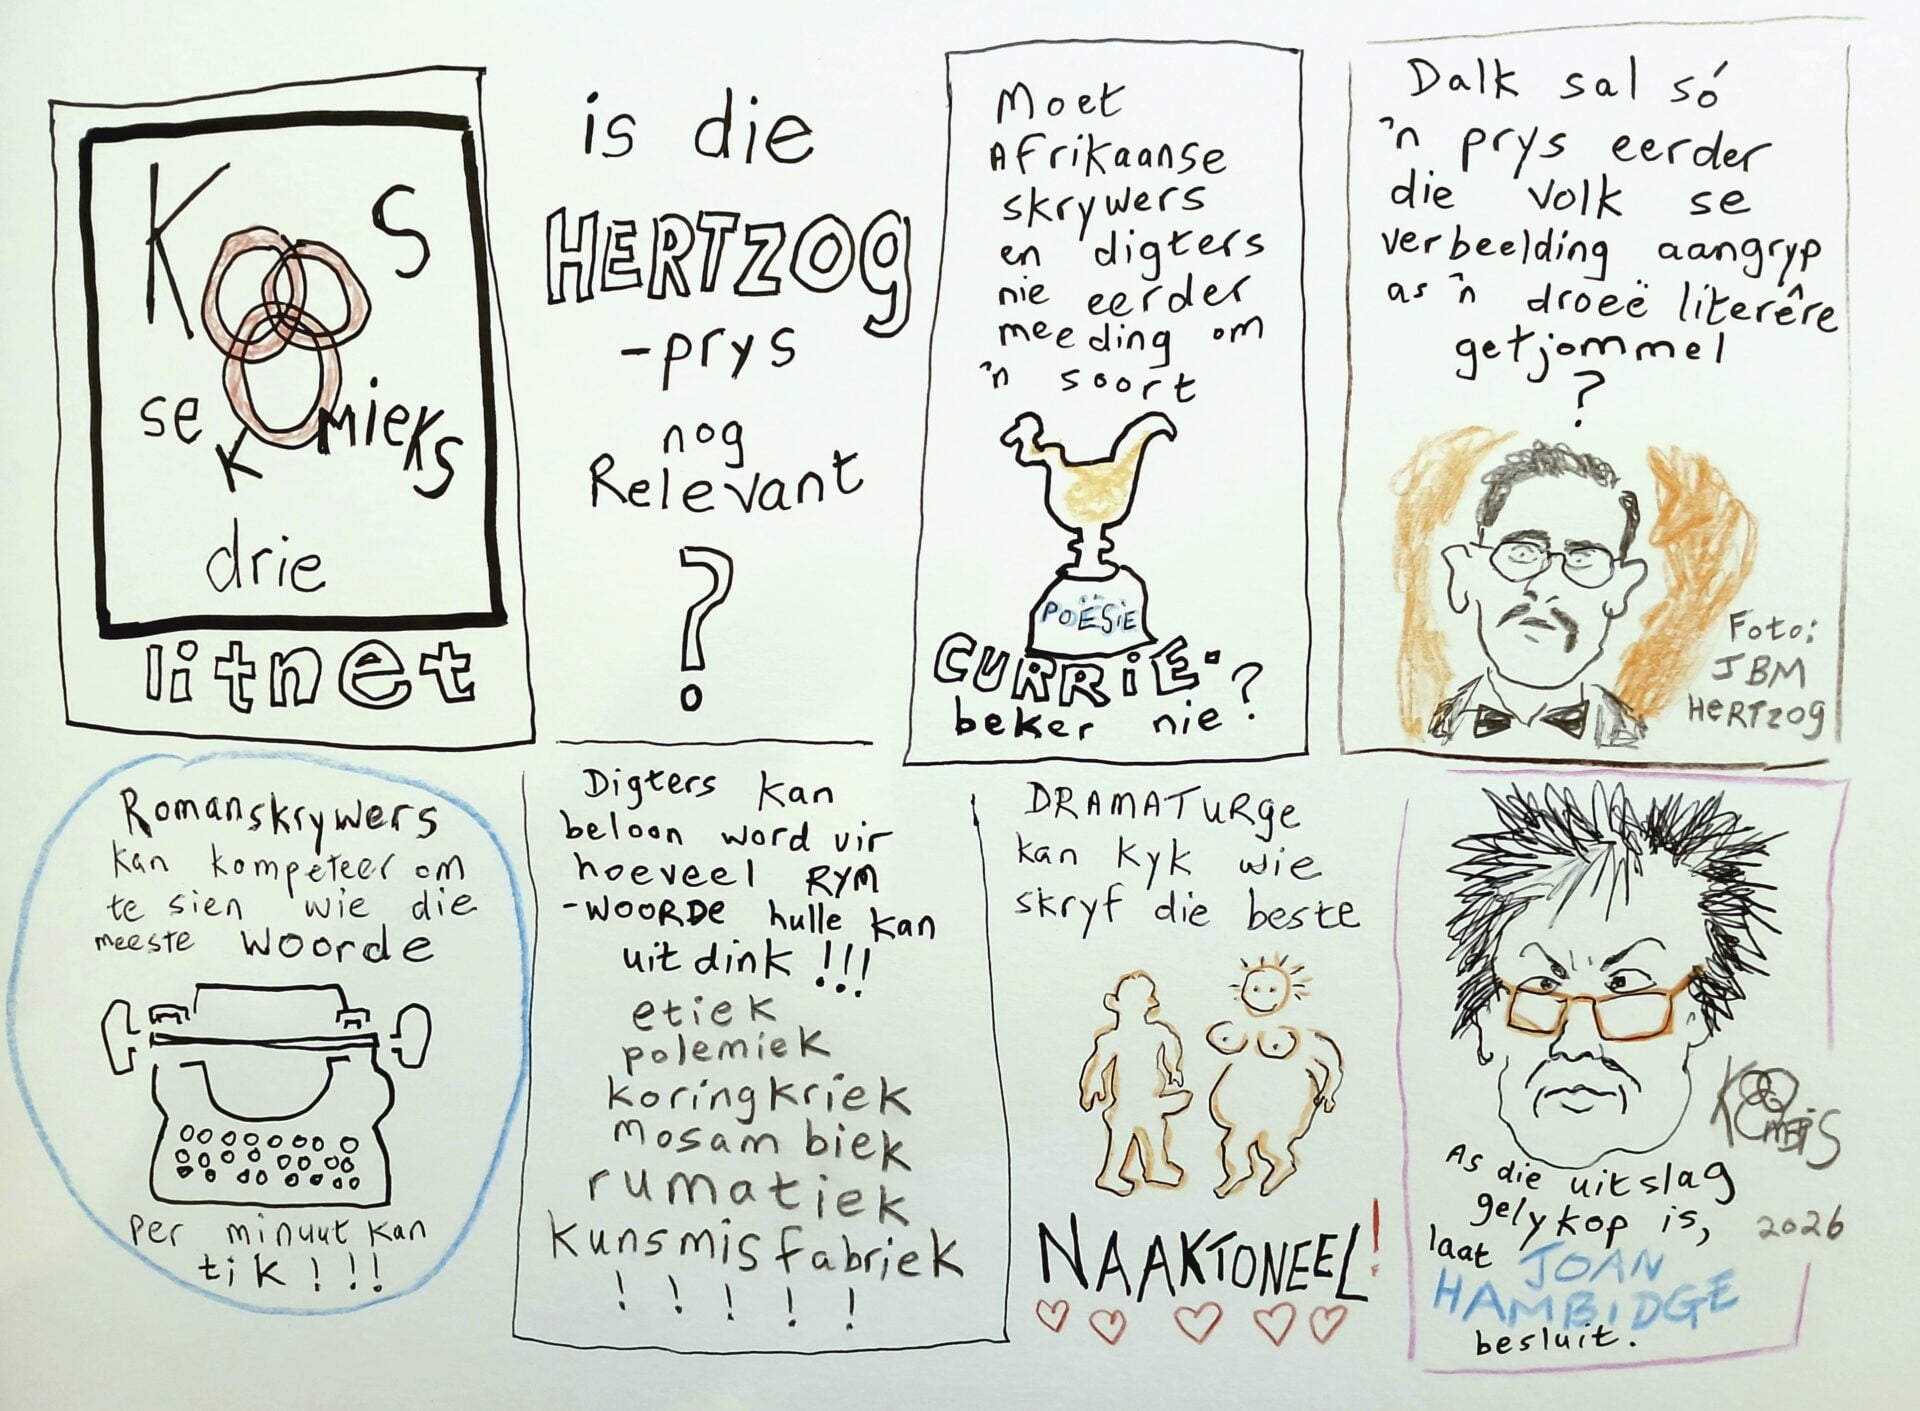 Koos
se
Komieks
drie
litnet
is die
HERTZOG
-prys
nog
Relevant
?
Moet
Afrikaanse
skrywers
en digters
nie eerder
meeding om
'n soort
POËSIE
CURRIE-
beker nie?
Dalk sal só
'n prys eerder
die volk se
verbeelding aangryp
as 'n droeë literêre
getjommel
?
Foto:
JBM
HERTZOG
Romanskrywers
kan kompeteer om
te sien wie die
meeste woorde
per minuut kan
tik!!!
Digters kan
beloon word vir
hoeveel RYM
-WOORDE hulle kan
uitdink!!!
etiek
polemiek
koringkriek
mosambiek
rumatiek
kunsmisfabriek
! ! ! ! !
DRAMATURge
kan kyk wie
skryf die beste
NAAKTONEEL!
As die uitslag
gelykop is,
laat JOAN
HAMBIDGE
besluit.
2026